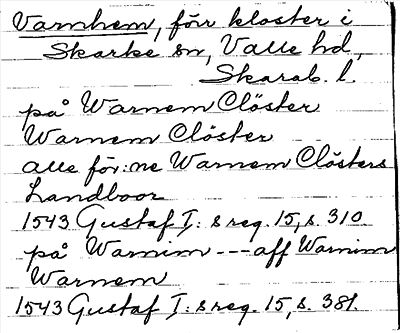 Varnhem, förr kloster i
Skarke sn, Valle hd,
Skarab. l.
på Warnem Clöster
Warnem Clöster
alle för:ne Warnem Clösters
Landboor
1543 Gustaf I:s reg. 15, s. 310
på Warnim --- aff Warnim
Warnem
1543 Gustaf I:s reg. 15, s. 381.